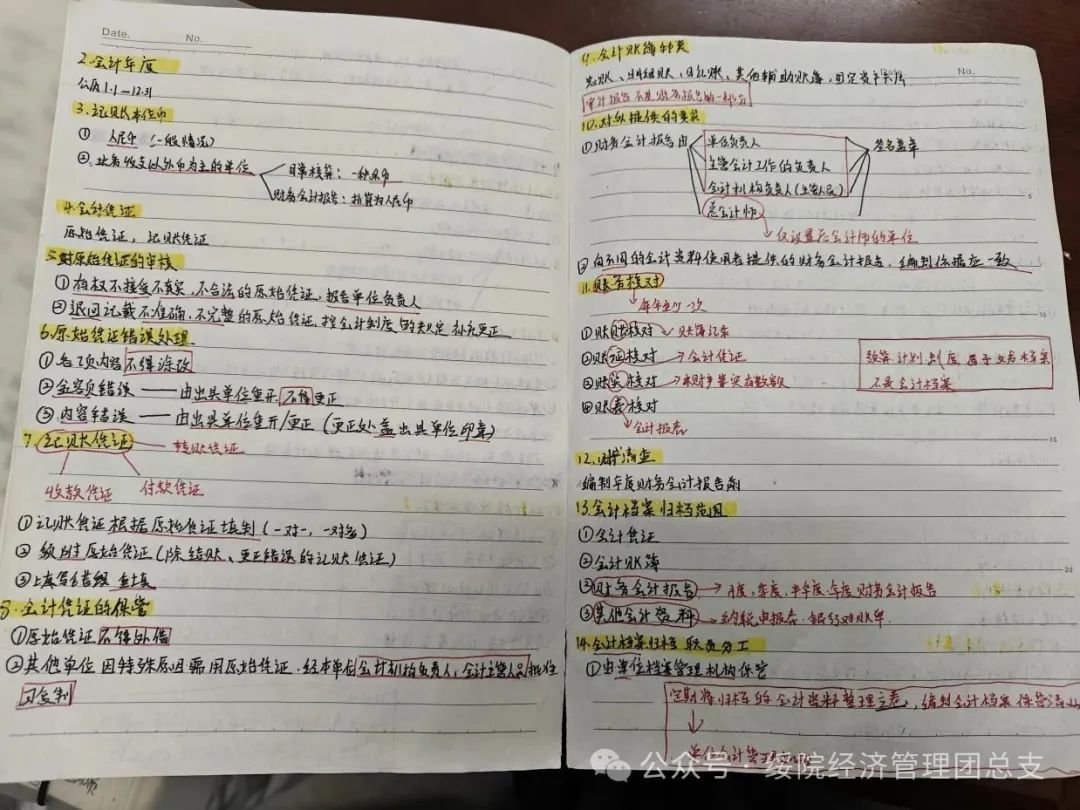 Date.  No.
2.会计年度
公历1.1—12.31
3.记账本位币
① 人民币 (一般情况)
② 业务收支以外币为主的单位
日常核算：一种外币
财务会计报告：折算为人民币
4.会计凭证
原始凭证，记账凭证
5.对原始凭证的审核
①有权不接受不真实，不合法的原始凭证，报告单位负责人
②退回记载不准确，不完整的原始凭证，按会计制度的规定补充更正
6.原始凭证错误处理
①各项内容不得涂改
②金额错误 —— 由出具单位重开 不得更正
③内容错误 —— 由出具单位重开/更正 (更正处盖出具单位印章)
7.记账凭证 转账凭证
收款凭证 付款凭证
①记账凭证根据原始凭证填制 (一对一，一对多)
②须附原始凭证(除结账、更正错误的记账凭证)
③填写错误 重填
8.会计凭证的保管
①原始凭证不得外借
②其他单位因特殊原因需用原始凭证，经本单位会计机构负责人，会计主管人员批准
可复制
9.会计账簿种类
总账、明细账、日记账、其他辅助账簿，固定资产卡片
No.
审计报告不是财务报告的一部分
10.对外提供的要求
①财务会计报告由
单位负责人
主管会计工作的负责人
会计机构负责人(主管人员)
总会计师
签名盖章
仅设置总会计师的单位
②向不同的会计资料使用者提供的财务会计报告，编制依据应一致
11.账务核对
每年至少一次
①账账核对 → 账簿记录
②账证核对 → 会计凭证
③账实核对 → 财产等实有数额
④账表核对
会计报表
预算、计划、制度 属于文书档案
不是会计档案
12.财产清查
编制年度财务会计报告前
13.会计档案归档范围
①会计凭证
②会计账簿
③财务会计报告 → 月度，季度，半年度，年度财务会计报告
④其他会计资料 → 纳税申报表、银行对账单
14.会计档案归档职责分工
①由单位档案管理机构保管
定期将归档的会计资料整理立卷，编制会计档案保管清册
单位会计管理机构
公众号 · 绥院经济管理团总支